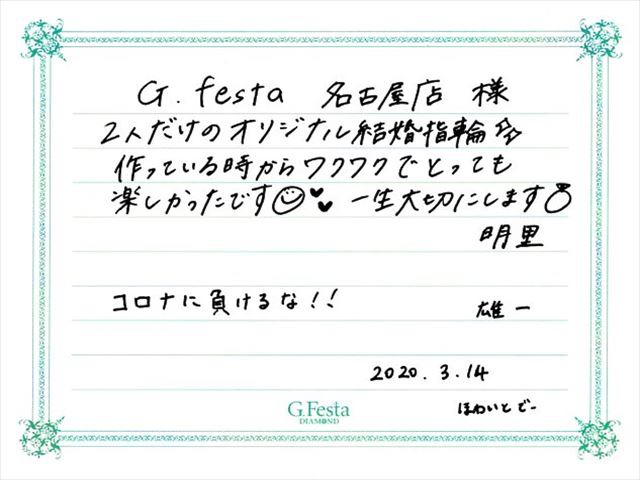 G.festa 名古屋店 様
2人だけのオリジナル結婚指輪
作っている時からワクワクでとっても
楽しかったです 一生大切にします
明里
コロナに負けるな!!
雄一
2020.3.14
ほわいとでー
G.Festa
DIAMOND